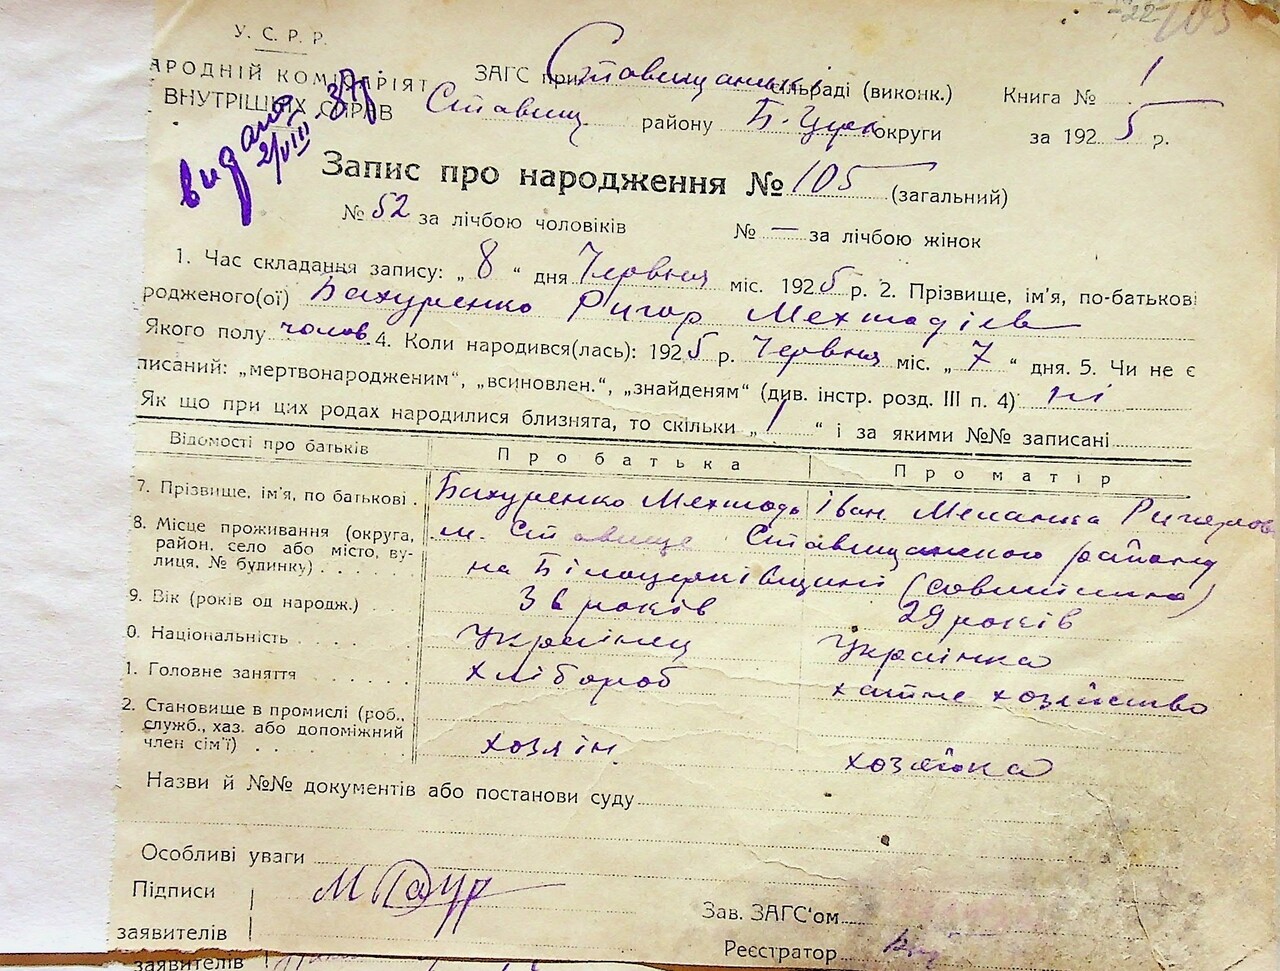 105
У. С. Р. Р.
АРОДНІЙ КОМІСАРІЯТ
ВНУТРІШНІХ СПРАВ
видано 2/VIII-37р
ЗАГС при Ставищанській сільраді (виконк.) Книга № 1
Ставищ району Б-Церк округи за 1925 р.
Запис про народження № 105 (загальний)
№ 52 за лічбою чоловіків № — за лічбою жінок
1. Час складання запису: „ 8 “ дня Червня міс. 1925 р. 2. Прізвище, ім'я, по-батькові
родженого(ої) Бахуренко Ригор Мехтодіев
Якого полу чолов. 4. Коли народився(лась): 1925 р. Червня міс. „ 7 “ дня. 5. Чи не є
писаний: „мертвонародженим“, „всиновлен.“, „знайденям“ (див. інстр. розд. III п. 4) ні
Як що при цих родах народилися близнята, то скільки „ 1 “ і за якими №№ записані
Відомості про батьків Про батька Про матір
7. Прізвище, ім'я, по батькові . Бахуренко Мехтодь Іван. Меланка Ригоров
8. Місце проживання (округа, м. Ставище Ставищанского району
район, село або місто, ву-
лиця, № будинку) . . . . на Білоцерківщині (совмісно)
9. Вік (років од народж.) . 36 років 29 років
0. Національність . . . . Українец Українка
1. Головне заняття . . . . . . хлібороб хатне хозяйство
2. Становище в промислі (роб.,
служб., хаз. або допоміжний
член сім'ї) . . . . . . хозяін. хозяйка
Назви й №№ документів або постанови суду
Особливі уваги
Підписи
заявителів
Зав. ЗАГС'ом
Реєстратор
заявителів